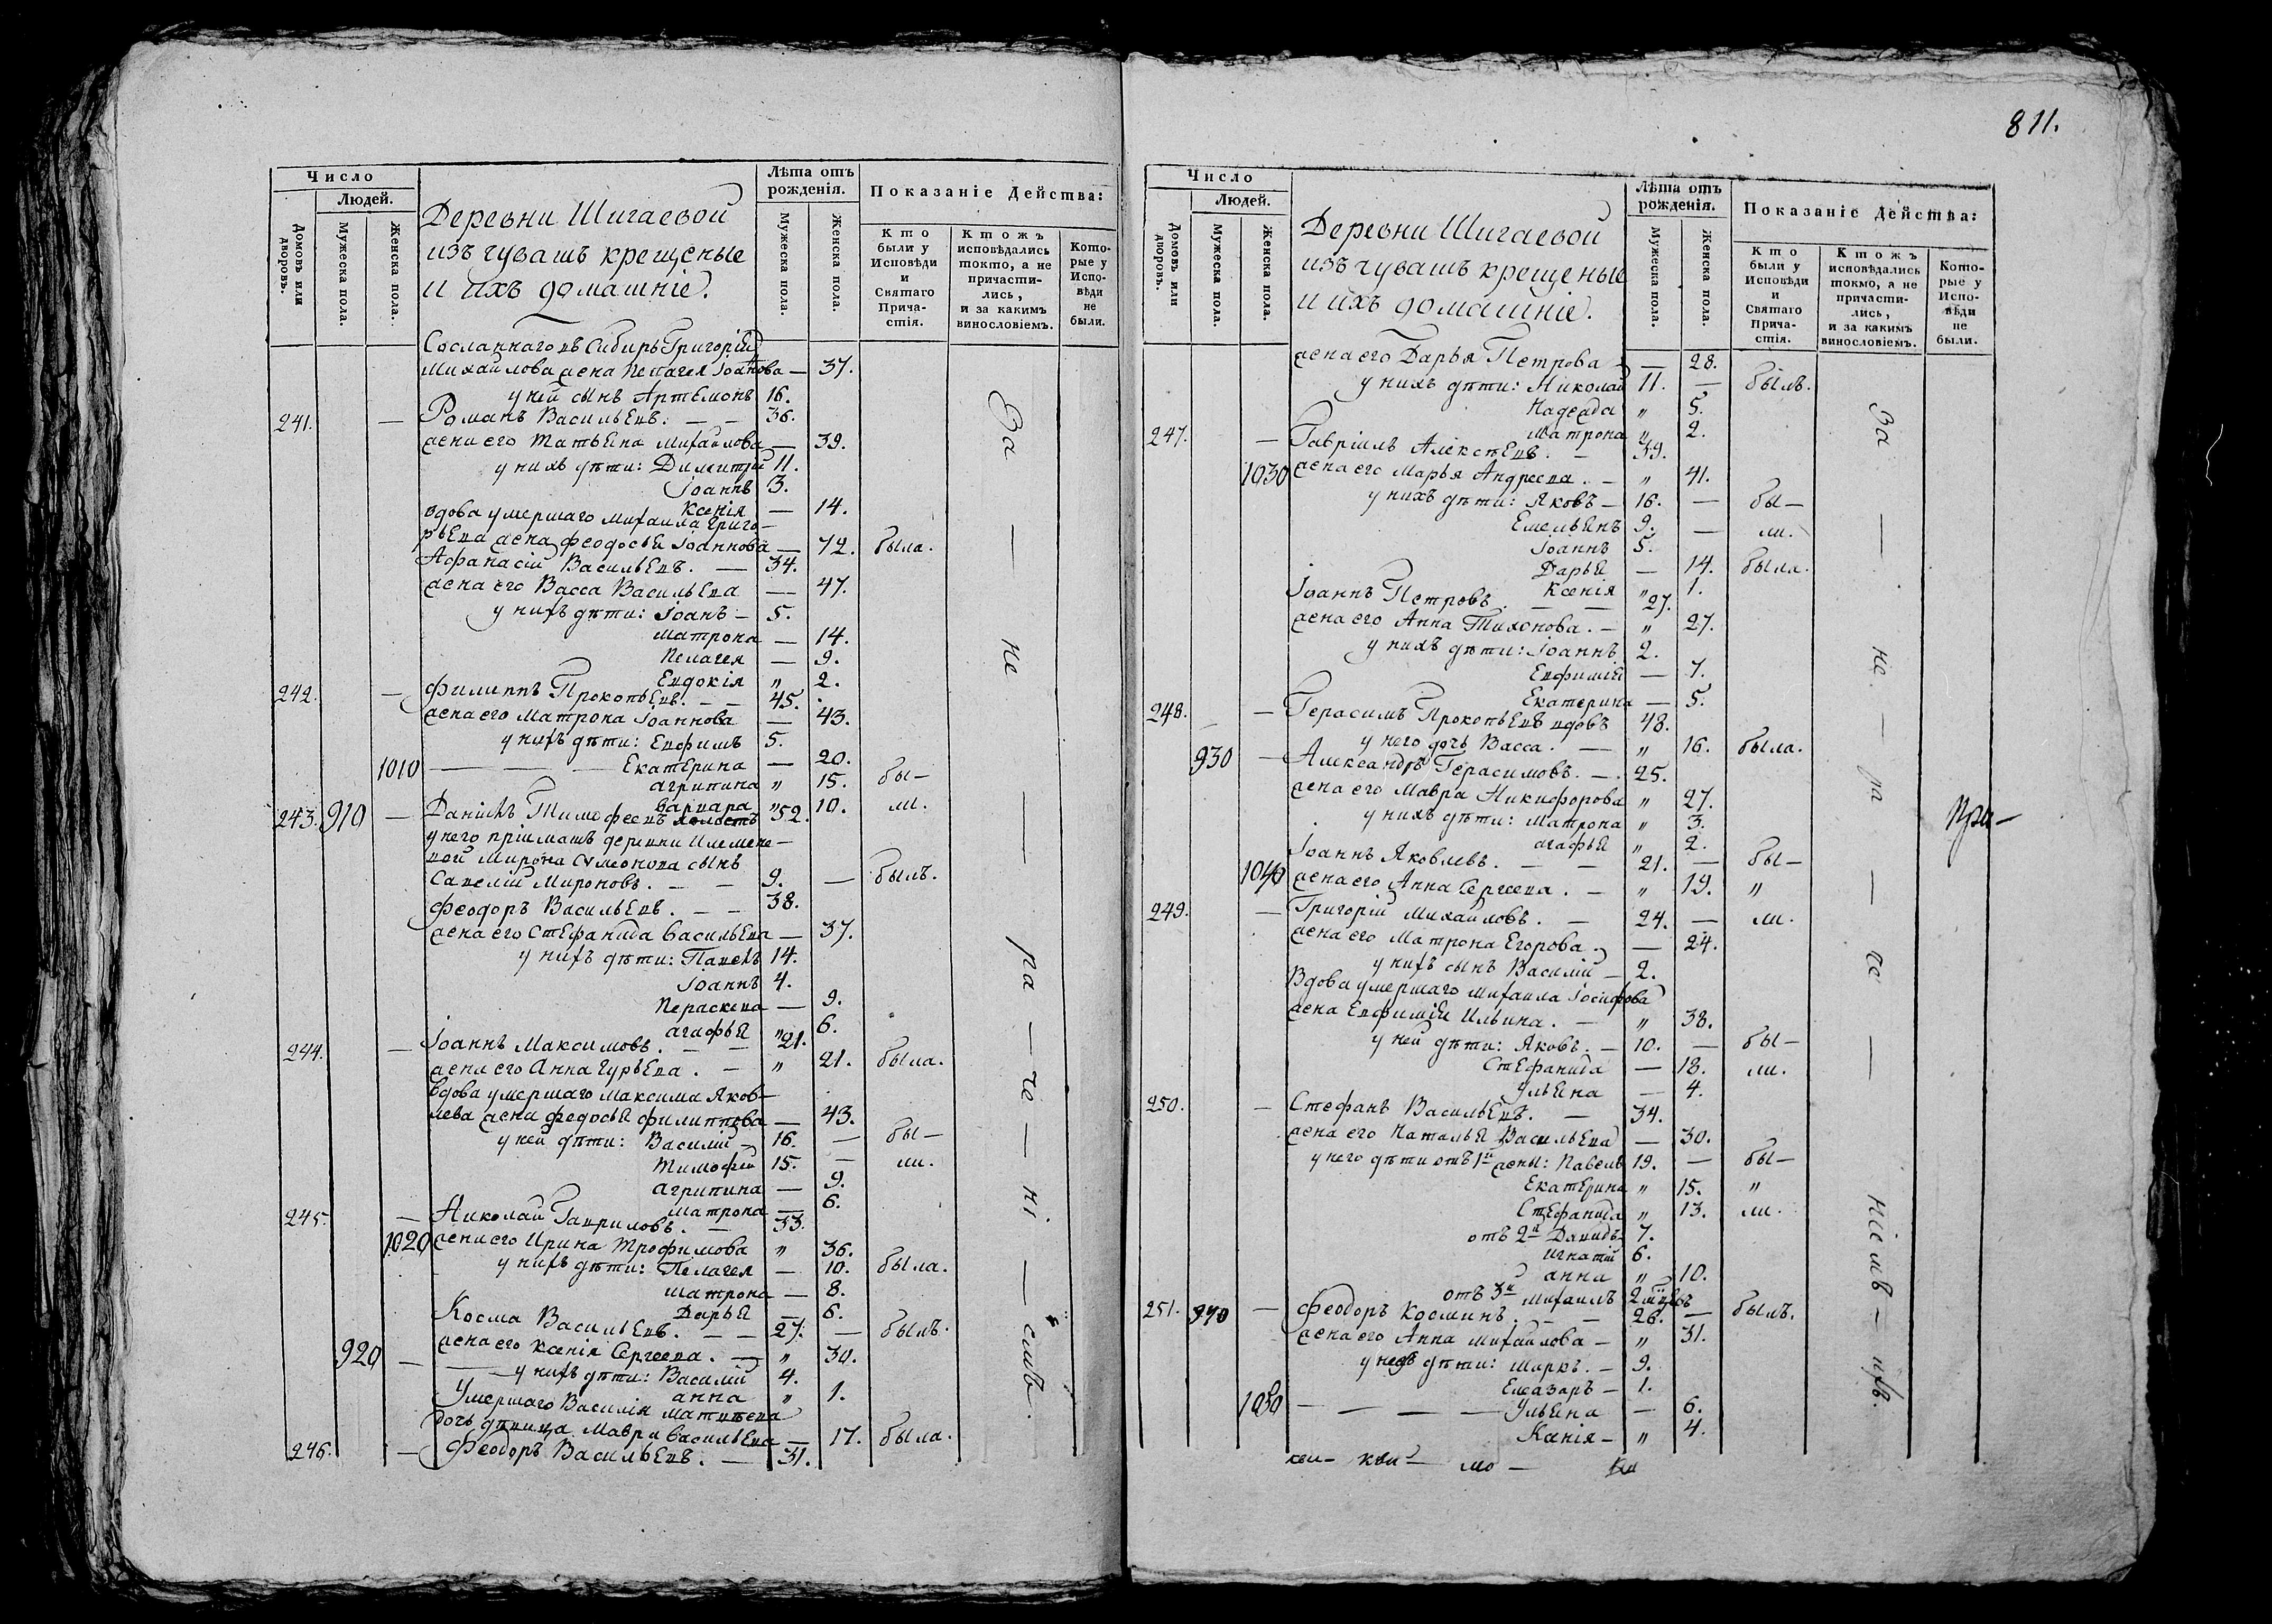 811.
Число
Людей.
Домовъ или дворовъ.
Мужеска пола.
Женска пола.
Деревни Шигаевой
изъ чувашъ крещеные
и ихъ домашніе.
Лѣта отъ рожденія.
Мужеска пола.
Женска пола.
Показаніе Действа:
Кто были у Исповѣди и Святаго Причастія.
Ктожъ исповѣдались токмо, а не причастились, и за какимъ винословіемъ.
Которые у Исповѣди не были.
Сосланнаго въ Сибирь Григорія
Михайлова жена Пелагея Іоаннова — 37.
у ней сынъ Артемонъ 16.
241. — Романъ Васильевъ. — — 36.
жена его Татьяна Михайлова — 39.
у нихъ дѣти: Димитрій 11.
Іоаннъ 3.
Ксенія — 14.
вдова умершаго Михаила Григо-
рьева жена Феодосья Іоаннова — 72. была.
Афанасій Васильевъ. — 34.
жена его Васса Васильева — 47.
у нихъ дѣти: Іоанъ — 5.
Матрона — 14.
Пелагея — 9.
Евдокія „ 2.
242. — Филиппъ Прокопьевъ. — — 45.
жена его Матрона Іоаннова — 43.
у нихъ дѣти: Евфимъ 5.
1010 — Екатерина — 20.
Агрипина „ 15. бы-
Варвара „ 10. ли.
243. 910 — Даніилъ Тимофеевъ холостъ 52.
у него пріимать деревни
вой Мирона Симеонова сынъ
Савелій Мироновъ. — — 9. — былъ.
Феодоръ Васильевъ. — — 38.
жена его Стефанида Васильева — 37.
у нихъ дѣти: Павелъ 14.
Іоаннъ 4.
Пераскева — 9.
Агафья „ 6.
244. — Іоаннъ Максимовъ. — — 21.
жена его Анна Гурьева. — „ 21. была.
Вдова умершаго Максима Яков-
лева жена Федосья Филиппова — 43.
у ней дѣти: Василій — 16. — бы-
Тимофей 15. — ли.
Агрипина — 9.
Матрона — 6.
245. — Николай Гавриловъ. — 33.
1020 жена его Ирина Трофимова „ 36.
у нихъ дѣти: Пелагея — 10. была.
Матрона — 8.
Дарья — 6.
Косма Васильевъ. — — 27. — былъ.
жена его Ксенія Сергеева. — „ 30.
920 — у нихъ дѣти: Василій 4.
Анна „ 1.
Умершаго Василія Матвеева
дочь девица Мавра Васильева — 17. была.
246. — Феодоръ Васильевъ. — 31.
За — не — ра — че — ні — емъ.
Число
Людей.
Домовъ или дворовъ.
Мужеска пола.
Женска пола.
Деревни Шигаевой
изъ чувашъ крещеные
и ихъ домашніе.
Лѣта отъ рожденія.
Мужеска пола.
Женска пола.
Показаніе Действа:
Кто были у Исповѣди и Святаго Причастія.
Ктожъ исповѣдались токмо, а не причастились, и за какимъ винословіемъ.
Которые у Исповѣди не были.
жена его Дарья Петрова — — 28.
у нихъ дѣти: Николай 11. — былъ.
Надежда „ 5.
Матрона „ 2.
247. — Гавріилъ Алексѣевъ. — 39.
1030 жена его Марья Андреева. — „ 41.
у нихъ дѣти: Яковъ — 16. — бы-
Емельянъ 9. — ли.
Іоаннъ 5.
Дарья — 14. была.
Ксенія „ 1.
Іоаннъ Петровъ. — — 27.
жена его Анна Тихонова. — „ 27.
у нихъ дѣти: Іоаннъ 2.
Евфимія — 7.
Екатерина — 5.
248. — Герасимъ Прокопьевъ вдовъ 48.
у него дочь Васса. — „ 16. была.
930 — Александръ Герасимовъ. — 25.
жена его Мавра Никифорова „ 27.
у нихъ дѣти: Матрона „ 3.
Агафья „ 2.
Іоаннъ Яковлевъ. — — 21. — бы-
1040 жена его Анна Сергеева. — „ 19. „
249. — Григорій Михайловъ. — 24. — ли.
жена его Матрона Егорова. — 24.
у нихъ сынъ Василій — 2.
Вдова умершаго Михаила Іосифова
жена Евфимія Ильина. — „ 38.
у ней дѣти: Яковъ. — 10. — бы-
Стефанида — 18. ли.
Ульяна — 4.
250. — Стефанъ Васильевъ. — 34.
жена его Наталья Васильева — 30.
у него дѣти отъ 1й жены: Павелъ 19. — бы-
Екатерина „ 15. „
Стефанида „ 13. ли.
отъ 2й Давидъ 7.
Игнатій 6.
Анна „ 10.
отъ 3й Михаилъ 2
251. 940 — Феодоръ Косминъ. — — 26. — былъ.
жена его Анна Михайлова — „ 31.
у нихъ дѣти: Маркъ. — 9.
Елеазаръ — 1.
1050 — Ульяна — 6.
Ксенія — „ 4.
За — не — ра — че — ніемъ — ихъ.
При-